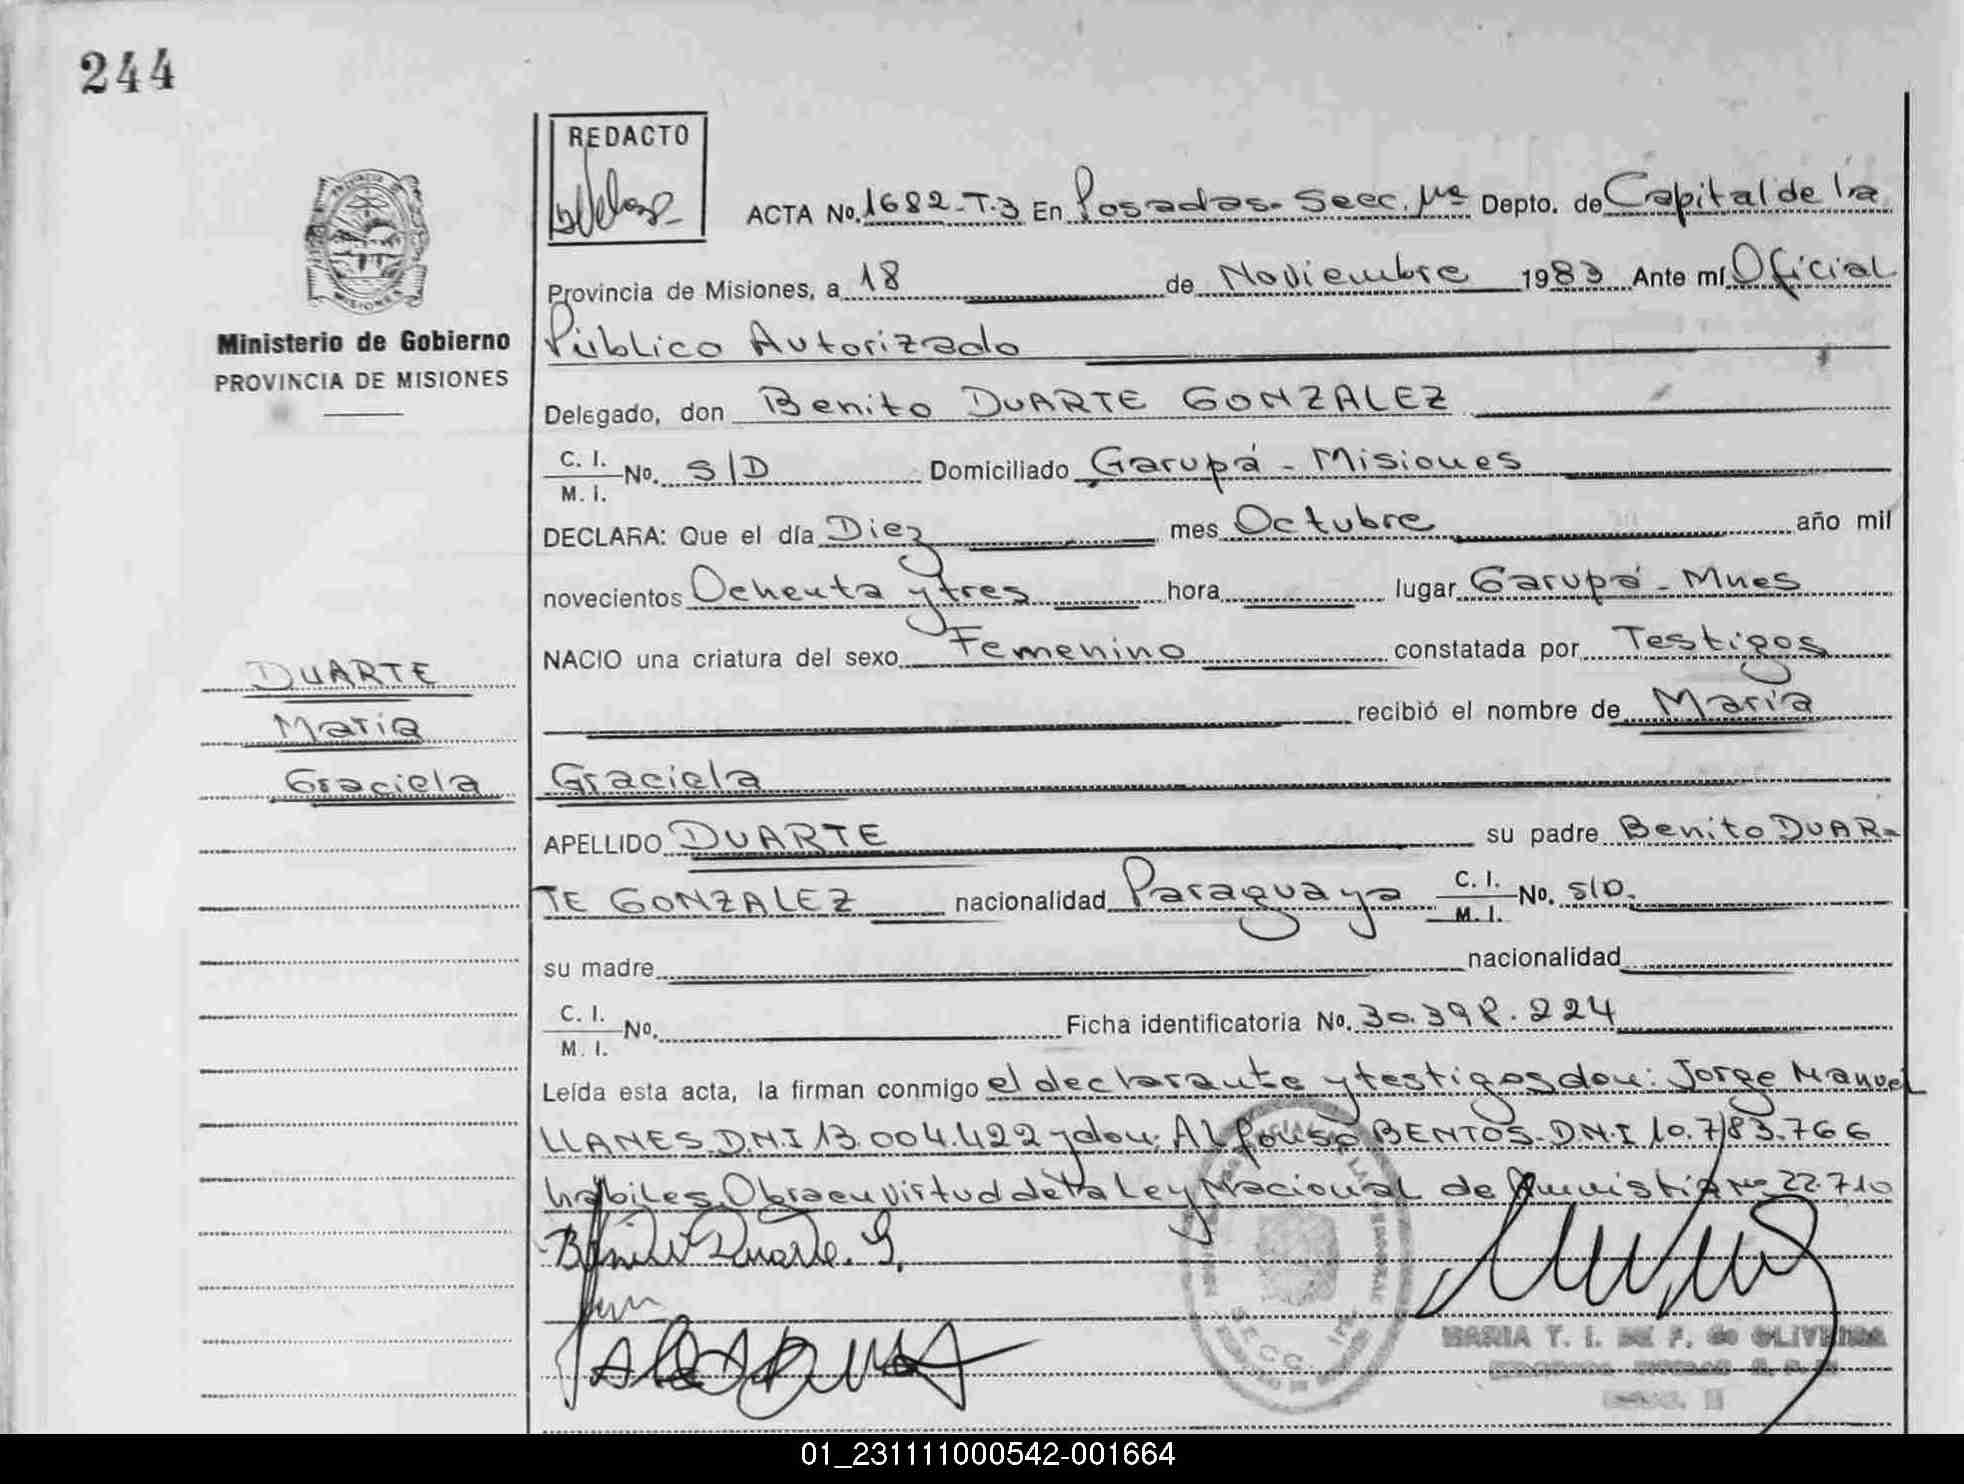 244
REDACTO
ACTA No. 1682-T.3 En Posadas-Seec. 1ra Depto. de Capital de la
Provincia de Misiones, a 18 de Noviembre 1983 Ante mí Oficial
Ministerio de Gobierno
PROVINCIA DE MISIONES
Público Autorizado
Delegado, don Benito DUARTE GONZALEZ
C. I.
M. I. No. S/D Domiciliado Garupá - Misiones
DECLARA: Que el día Diez mes Octubre año mil
novecientos Ochenta y tres hora lugar Garupá - Mnes
NACIO una criatura del sexo Femenino constatada por Testigos
DUARTE
María
Graciela
recibió el nombre de María
Graciela
APELLIDO DUARTE su padre Benito DUAR-
TE GONZALEZ nacionalidad Paraguaya C. I. M. I. No. S/D.
su madre nacionalidad
C. I.
M. I. No. Ficha identificatoria No. 30.398.224
Leída esta acta, la firman conmigo el declarante y testigos don: Jorge Manuel
LLANES D.N.I 13.004.422 y don: Alfonso BENTOS D.N.I 10.783.766
habiles. Obra en virtud de la Ley Nacional de Amnistia No 22.710
Benito Duarte. G.
SECC. 1ra
MARIA T. I. DE F. de OLIVEIRA
01_231111000542-001664